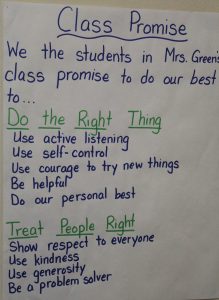 Class Promise
We the students in Mrs. Green's
class promise to do our best
to...
Do the Right Thing
Use active listening
Use self-control
Use courage to try new things
Be helpful
Do our personal best
Treat People Right
Show respect to everyone
Use kindness
Use generosity
Be a problem solver